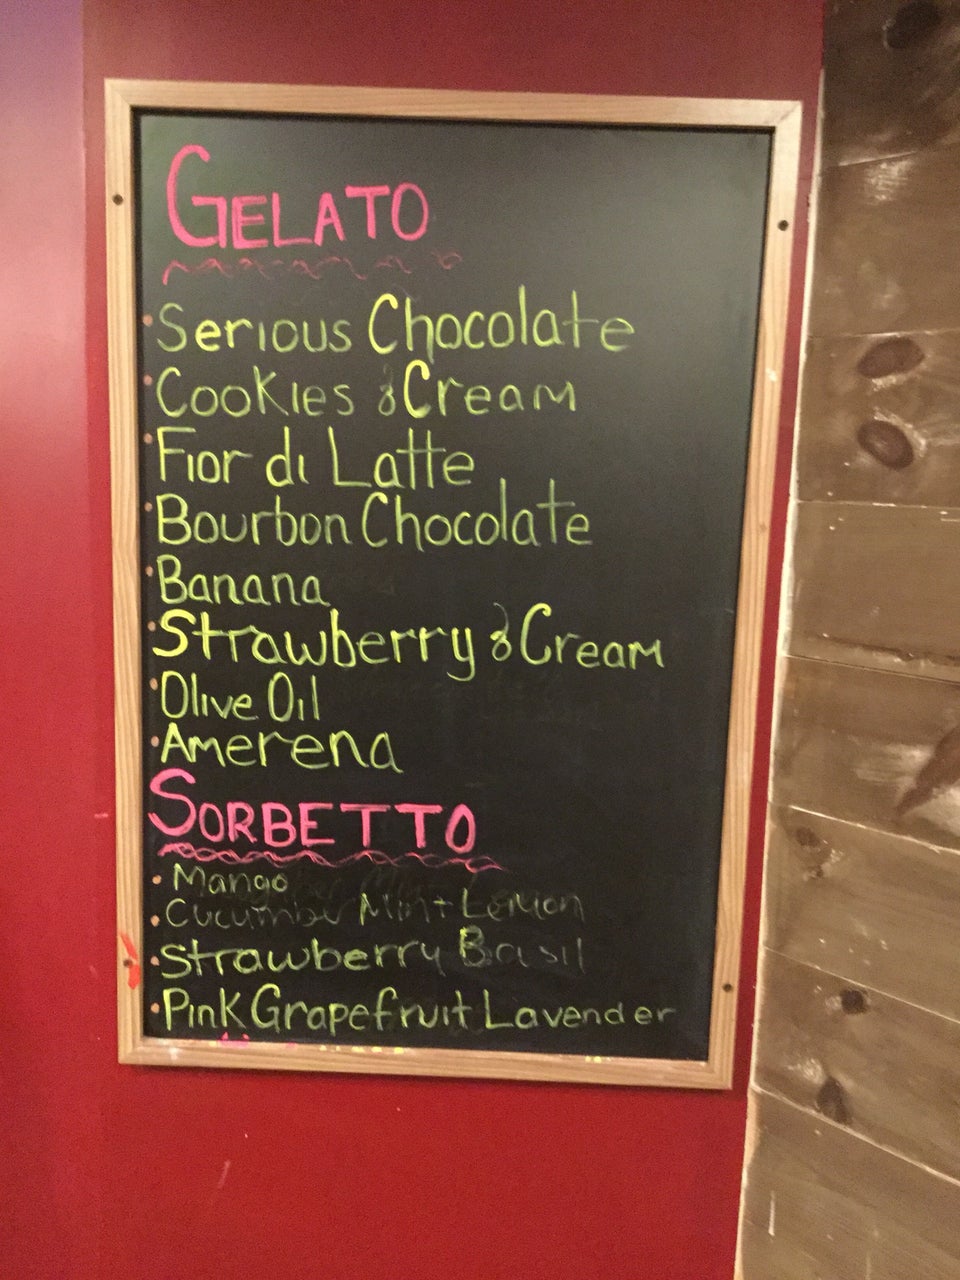 GELATO
Serious Chocolate
Cookies & Cream
Fior di Latte
Bourbon Chocolate
Banana
Strawberry & Cream
Olive Oil
Amerena
SORBETTO
Mango
Cucumber Mint Lemon
Strawberry Basil
Pink Grapefruit Lavender